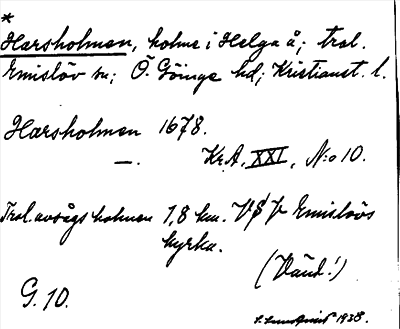 *
Harsholmen, holme i Helga å; trol.
Emislöv sn; Ö. Göinge hd; Kristianst. l.
Harsholmen 1678.
—. Kr.A. XXI, N:o 10.
Trol. avsågs holmen 1,8 km. VSV Emislövs
kyrka.
(Vänd!)
G. 10.
1938.